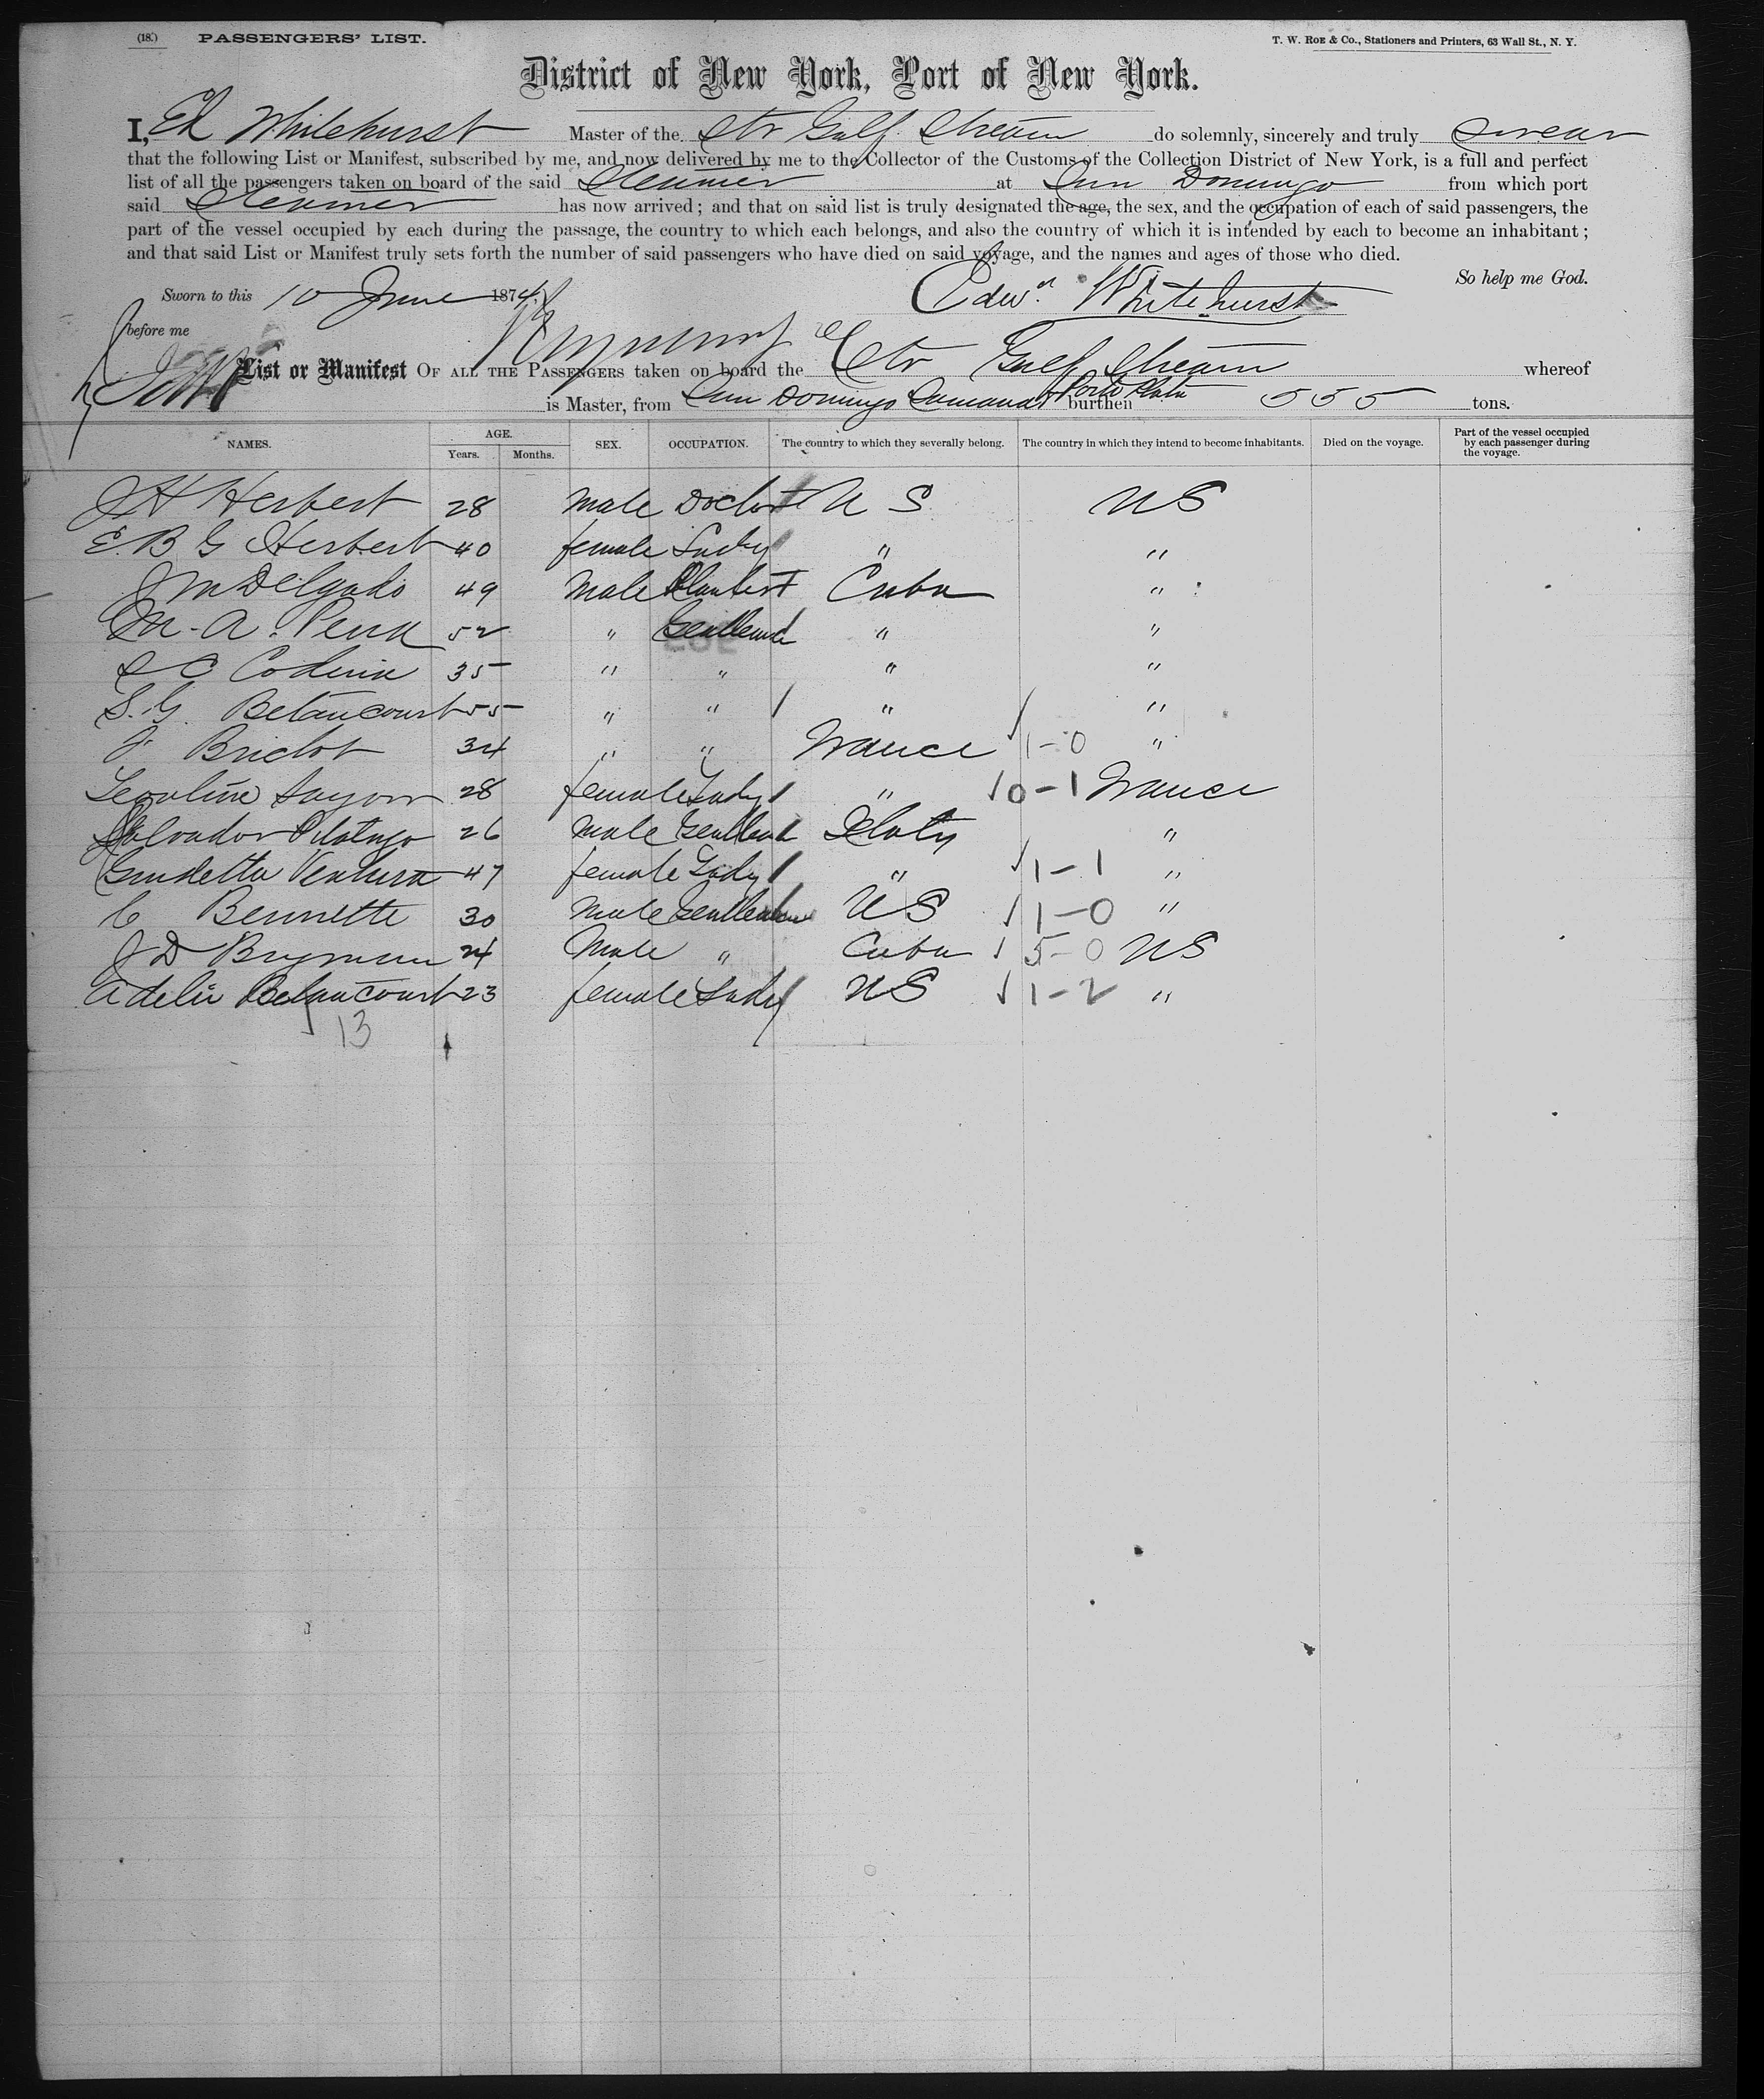 (18.) PASSENGERS' LIST. T. W. ROE & Co., Stationers and Printers, 63 Wall St., N. Y.
District of New York, Port of New York.
I, Ed Whitehurst Master of the Str Gulf Stream do solemnly, sincerely and truly swear
that the following List or Manifest, subscribed by me, and now delivered by me to the Collector of the Customs of the Collection District of New York, is a full and perfect
list of all the passengers taken on board of the said Steamer at San Domingo from which port
said Steamer has now arrived; and that on said list is truly designated the age, the sex, and the occupation of each of said passengers, the
part of the vessel occupied by each during the passage, the country to which each belongs, and also the country of which it is intended by each to become an inhabitant;
and that said List or Manifest truly sets forth the number of said passengers who have died on said voyage, and the names and ages of those who died.
So help me God.
Sworn to this 10 June 1874 Edwd. Whitehurst
before me
List or Manifest OF ALL THE PASSENGERS taken on board the Str Gulf Stream whereof
is Master, from San Domingo Samana & Porto Plata burthen 555 tons.
NAMES. AGE. Years. Months. SEX. OCCUPATION. The country to which they severally belong. The country in which they intend to become inhabitants. Died on the voyage. Part of the vessel occupied by each passenger during the voyage.
J H Herbert 28 male Doctor U S US
E. B G Herbert 40 female Lady " "
J M Delgado 49 Male Planter Cuba "
M. A. Pena 52 " Gentleman " "
35 " " " "
S. G. Betancourt 55 " " " "
J Bridot 34 " " France 1-0 "
28 female Lady " 0-1 France
Salvador 26 Male Gentleman "
Ventura 47 female Lady " 1-1 "
C Bennette 30 Male Gentleman US 1-0 "
J D 24 Male " Cuba 5-0 US
Adelie Betancourt 23 female Lady US 1-2 "
13